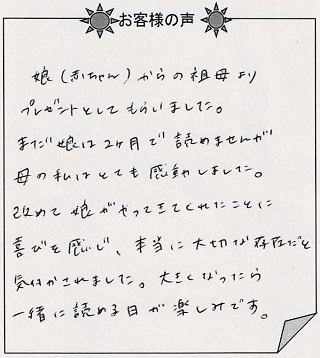 お客様の声
娘(赤ちゃん)からの祖母より
プレゼントとしてもらいました。
まだ娘は2ヶ月で読めませんが
母の私はとても感動しました。
改めて娘がやってきてくれたことに
喜びを感じ、本当に大切な存在だと
気付かされました。大きくなったら
一緒に読める日が楽しみです。